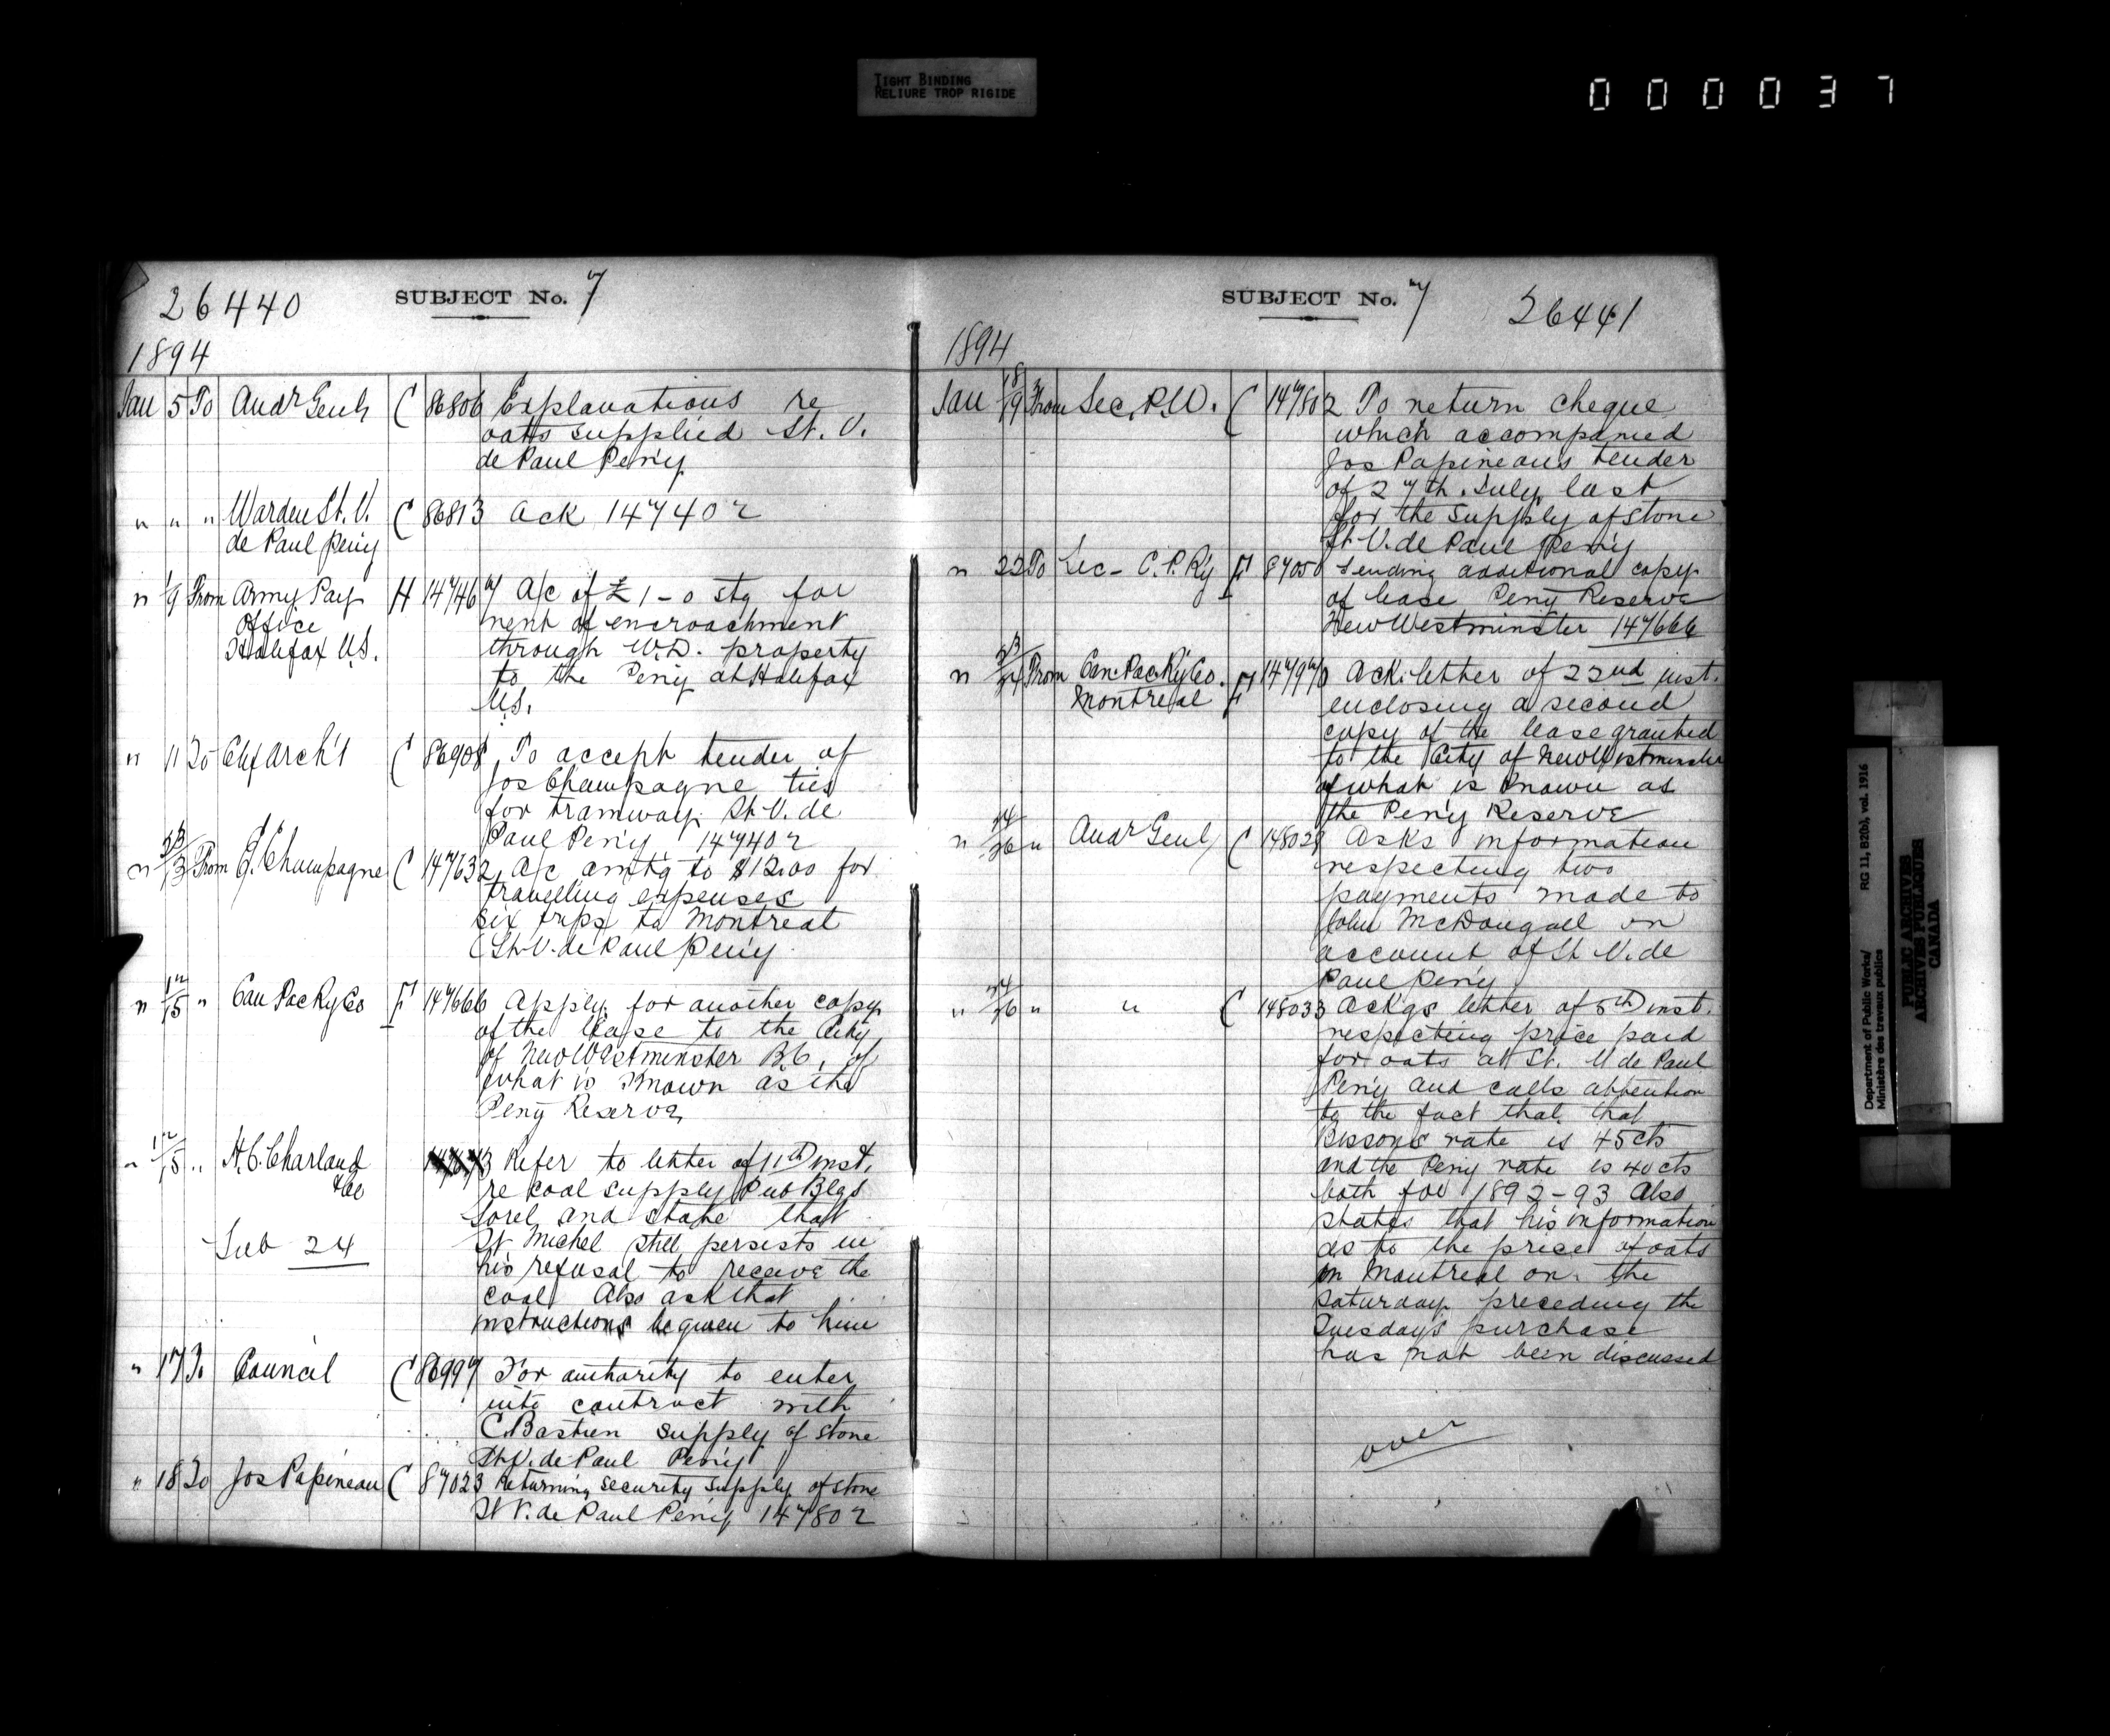 TIGHT BINDING
RELIURE TROP RIGIDE
000037
26440
SUBJECT No. 7
1894
Jan 5 To Audr Genl C 86806 Explanations re
oats supplied St. V.
de Paul Pen'y
" " " Warden St. V. C 86813 Ack 147402
de Paul Pen'y
" 9 From Army Pay H 147467 A/c of £1-0 stg for
Office rent of encroachment
Halifax N.S. through W.D. property
to the Peny at Halifax
N.S.
" 11 To Chf Arch't C 86908 To accept tender of
Jos Champagne ties
for tramway St. V. de
Paul Pen'y 147402
" 13 From J. Champagne C 147632 A/c amtg to $12.00 for
travelling expenses
six trips to Montreal
(St. V. de Paul Pen'y
" 12/15 " Can Pac Ry Co F 147666 Apply for another copy
of the lease to the City
of New Westminster B.C. of
what is known as the
Peny Reserve
" 12/15 " H.C. Charland Refer to letter of 11th inst.
& Co re coal supply Pub Blgs
Sorel and state that
St Michel still persists in
his refusal to receive the
Sub 24
coal Also ask that
instructions be given to him
" 17 To Council C 86997 For authority to enter
into contract with
C. Bastien supply of stone
St. V. de Paul Peny
" 18 To Jos Papineau C 87023 Returning security supply of stone
St V. de Paul Pen'y 147802
SUBJECT No. 7
26441
1894
Jan 18/19 From Sec. P.W. C 147802 To return cheque
which accompanied
Jos Papineaus tender
of 27th July last
for the supply of stone
St. V. de Paul Pen'y
" 22 To Sec - C.P. Ry F 87050 Sending additional copy
of lease Peny Reserve
New Westminster 147666
" 23/24 From Can. Pac. Ry Co. F 147970 Ack. letter of 22nd inst.
Montreal enclosing a second
copy of the lease granted
to the City of New Westminster
of what is known as
the Pen'y Reserve
" 24/26 " Audr Genl C 148028 Asks information
respecting two
payments made to
John McDougall on
account of St V. de
Paul Pen'y
" 24/26 " " C 148033 Ackgs letter of 5th inst.
respecting price paid
for oats at St. V de Paul
Pen'y and calls attention
to the fact that that
Bissons rate is 45cts
and the Peny rate is 40cts
both for 1892-93 Also
states that his information
as to the price of oats
in Montreal on the
Saturday preceding the
Tuesdays purchase
has not been discussed
over
Department of Public Works/ RG 11, B2(b), vol. 1916
Ministère des travaux publics
PUBLIC ARCHIVES
ARCHIVES PUBLIQUES
CANADA